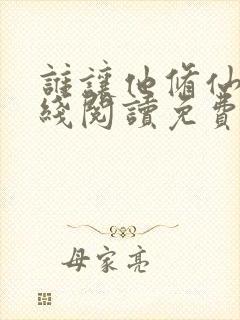 誰讓他脩仙
綫閱讀免費
母家亮